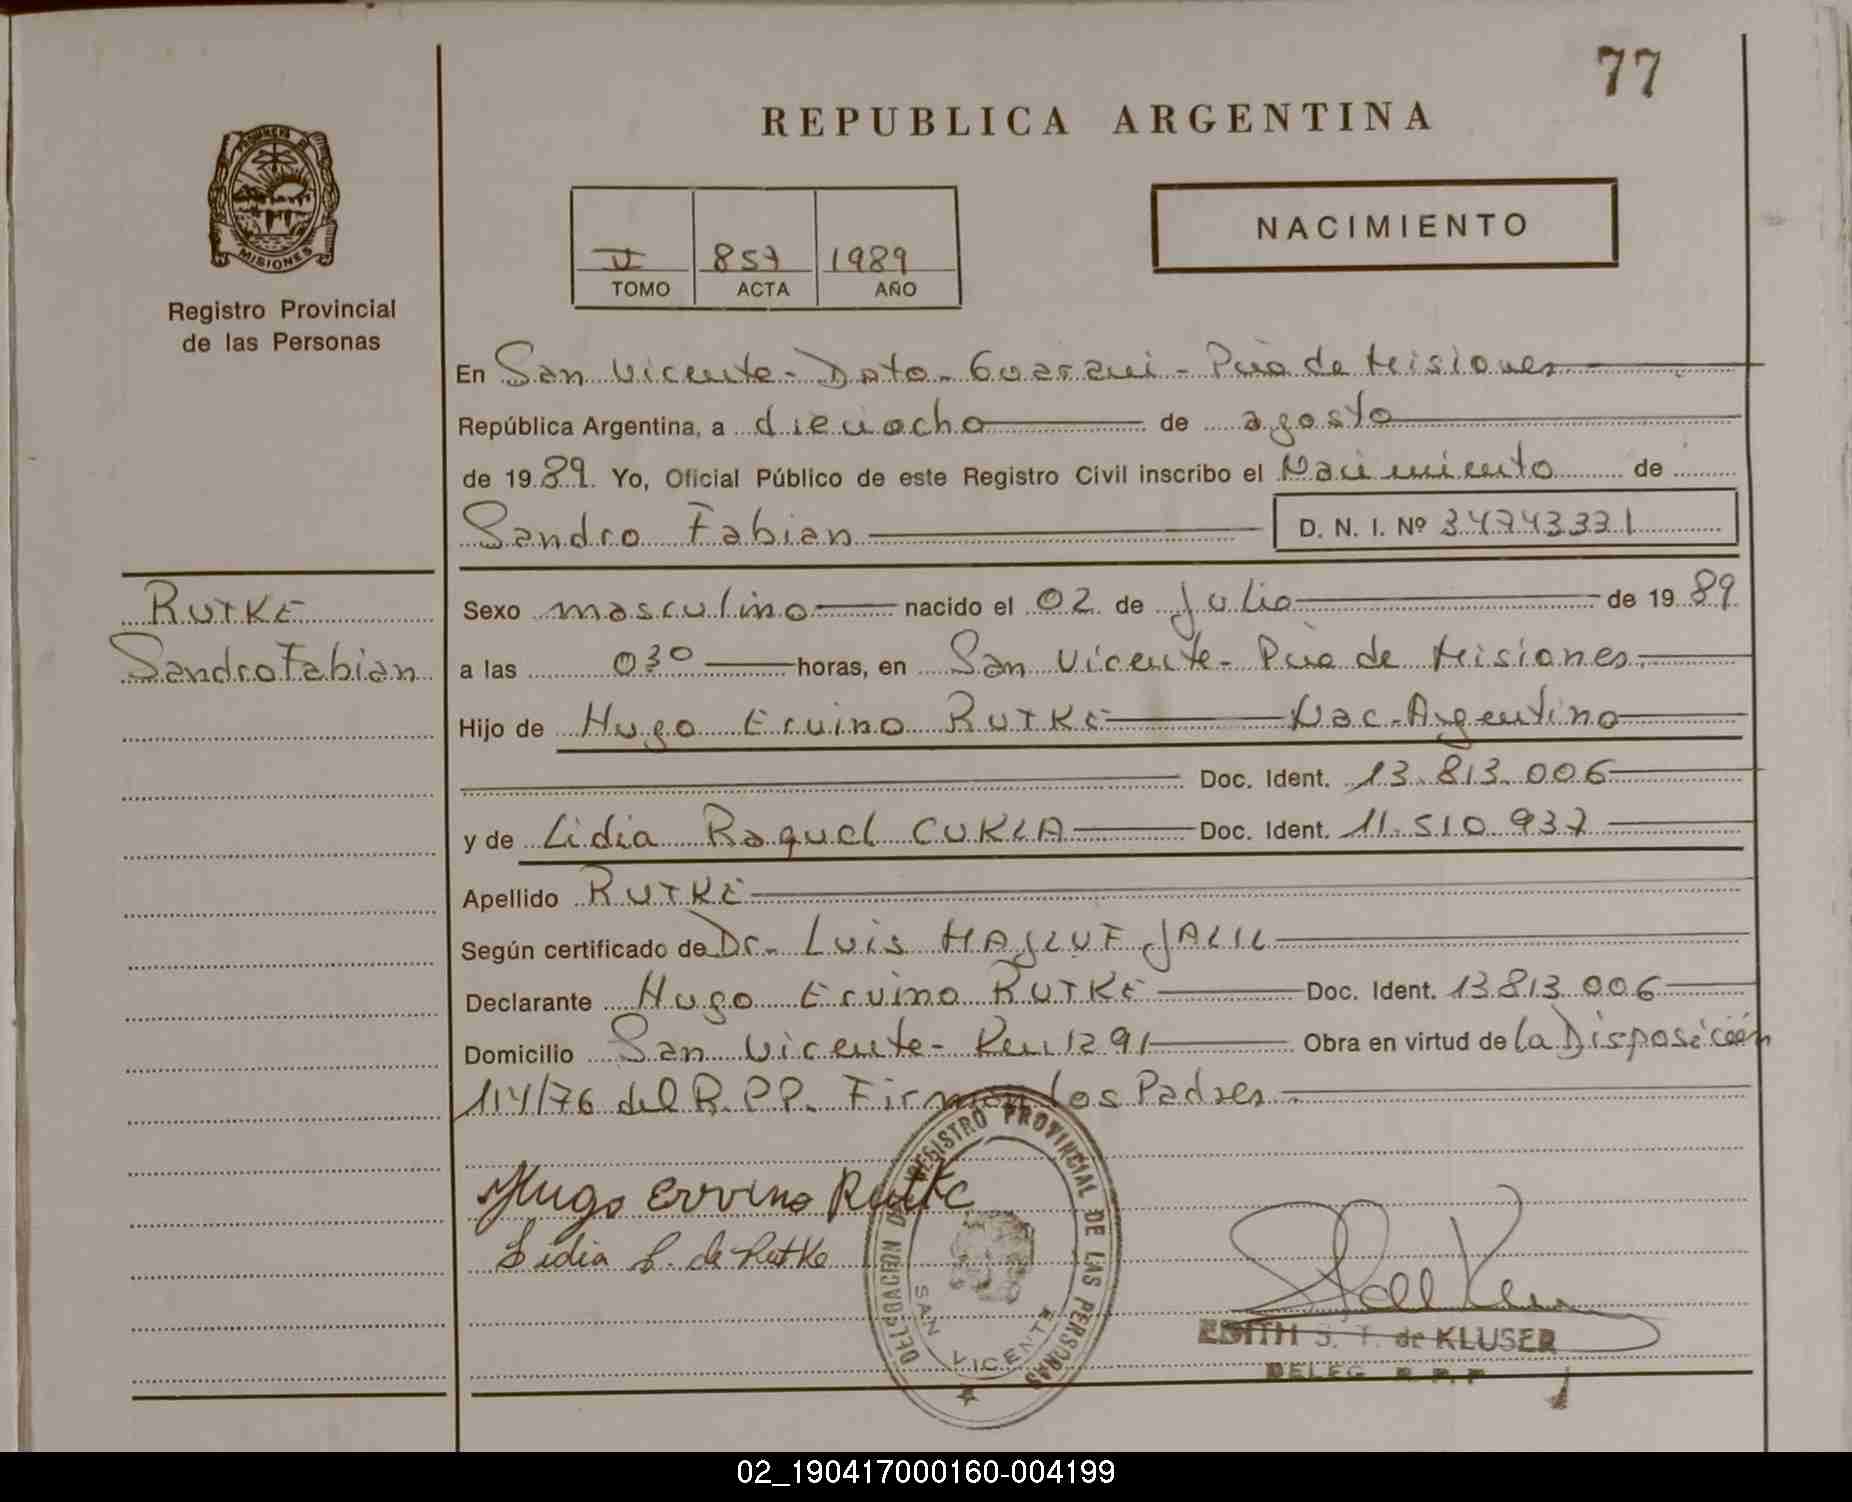 77
REPUBLICA ARGENTINA
PROVINCIA DE
MISIONES
Registro Provincial
de las Personas
NACIMIENTO
II 857 1989
TOMO ACTA AÑO
En San Vicente - Dpto - Guaraní - Pcia de Misiones
República Argentina, a dieciocho de agosto
de 1989. Yo, Oficial Público de este Registro Civil inscribo el Nacimiento de
Sandro Fabian D. N. I. Nº 34743331
RUTKE
Sandro Fabian
Sexo masculino nacido el 02 de Julio de 1989
a las 030 horas, en San Vicente - Pcia de Misiones.
Hijo de Hugo Ervino RUTKE Nac. Argentino
Doc. Ident. 13.813.006
y de Lidia Raquel CUKLA Doc. Ident. 11.510.937
Apellido RUTKE
Según certificado de Dr. Luis MAJLUF JALIL
Declarante Hugo Ervino RUTKE Doc. Ident. 13.813.006
Domicilio San Vicente - Km 1291 Obra en virtud de la Disposición
114/76 del R.P.P. Firman los Padres.
Hugo Ervino Rutke
Lidia de Rutke
DELEGACION DEL REGISTRO PROVINCIAL DE LAS PERSONAS
SAN VICENTE
EDITH S. T. de KLUSER
DELEG R. P. P
02_190417000160-004199